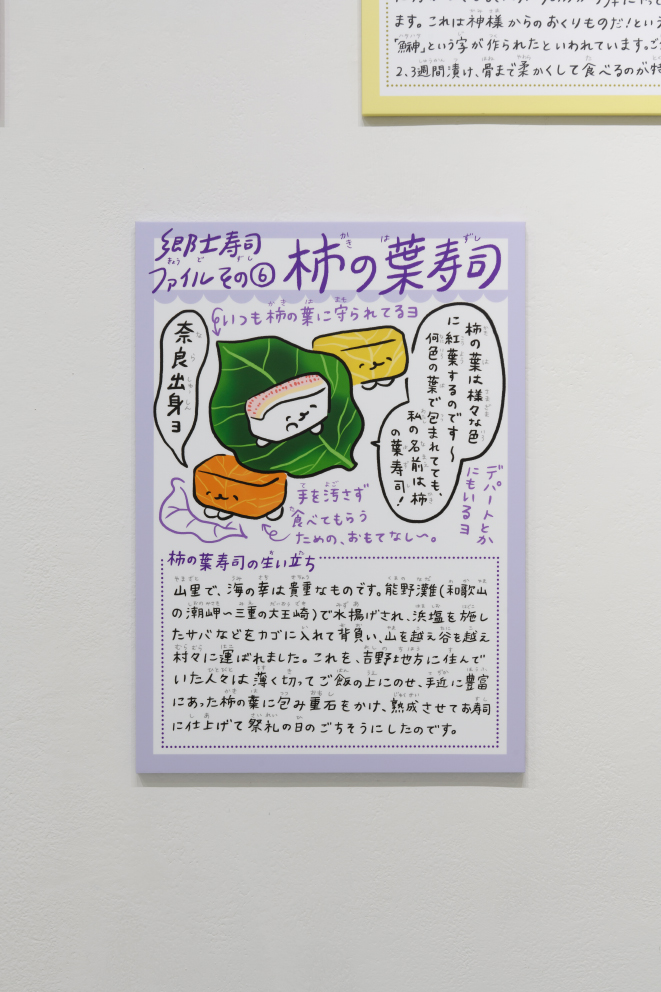 ます。これは神様からのおくりものだ!とい
「鰰」という字が作られたといわれています。
2、3週間漬け、骨まで柔かくして食べるのが特
郷土寿司
ファイルその⑥
柿の葉寿司
いつも柿の葉に守られてるヨ
奈良出身ヨ
柿の葉は様々な色
に紅葉するのです〜
何色の葉で包まれてても、
私の名前は柿
の葉寿司!
デパートとか
にもいるヨ
手を汚さず
食べてもらう
ための、おもてなし〜。
柿の葉寿司の生い立ち
山里で、海の幸は貴重なものです。熊野灘(和歌山
の潮岬〜三重の大王崎)で水揚げされ、浜塩を施し
たサバなどをカゴに入れて背負い、山を越え谷を越え
村々に運ばれました。これを、吉野地方に住んで
いた人々は薄く切ってご飯の上にのせ、手近に豊富
にあった柿の葉に包み重石をかけ、熟成させてお寿司
に仕上げて祭礼の日のごちそうにしたのです。